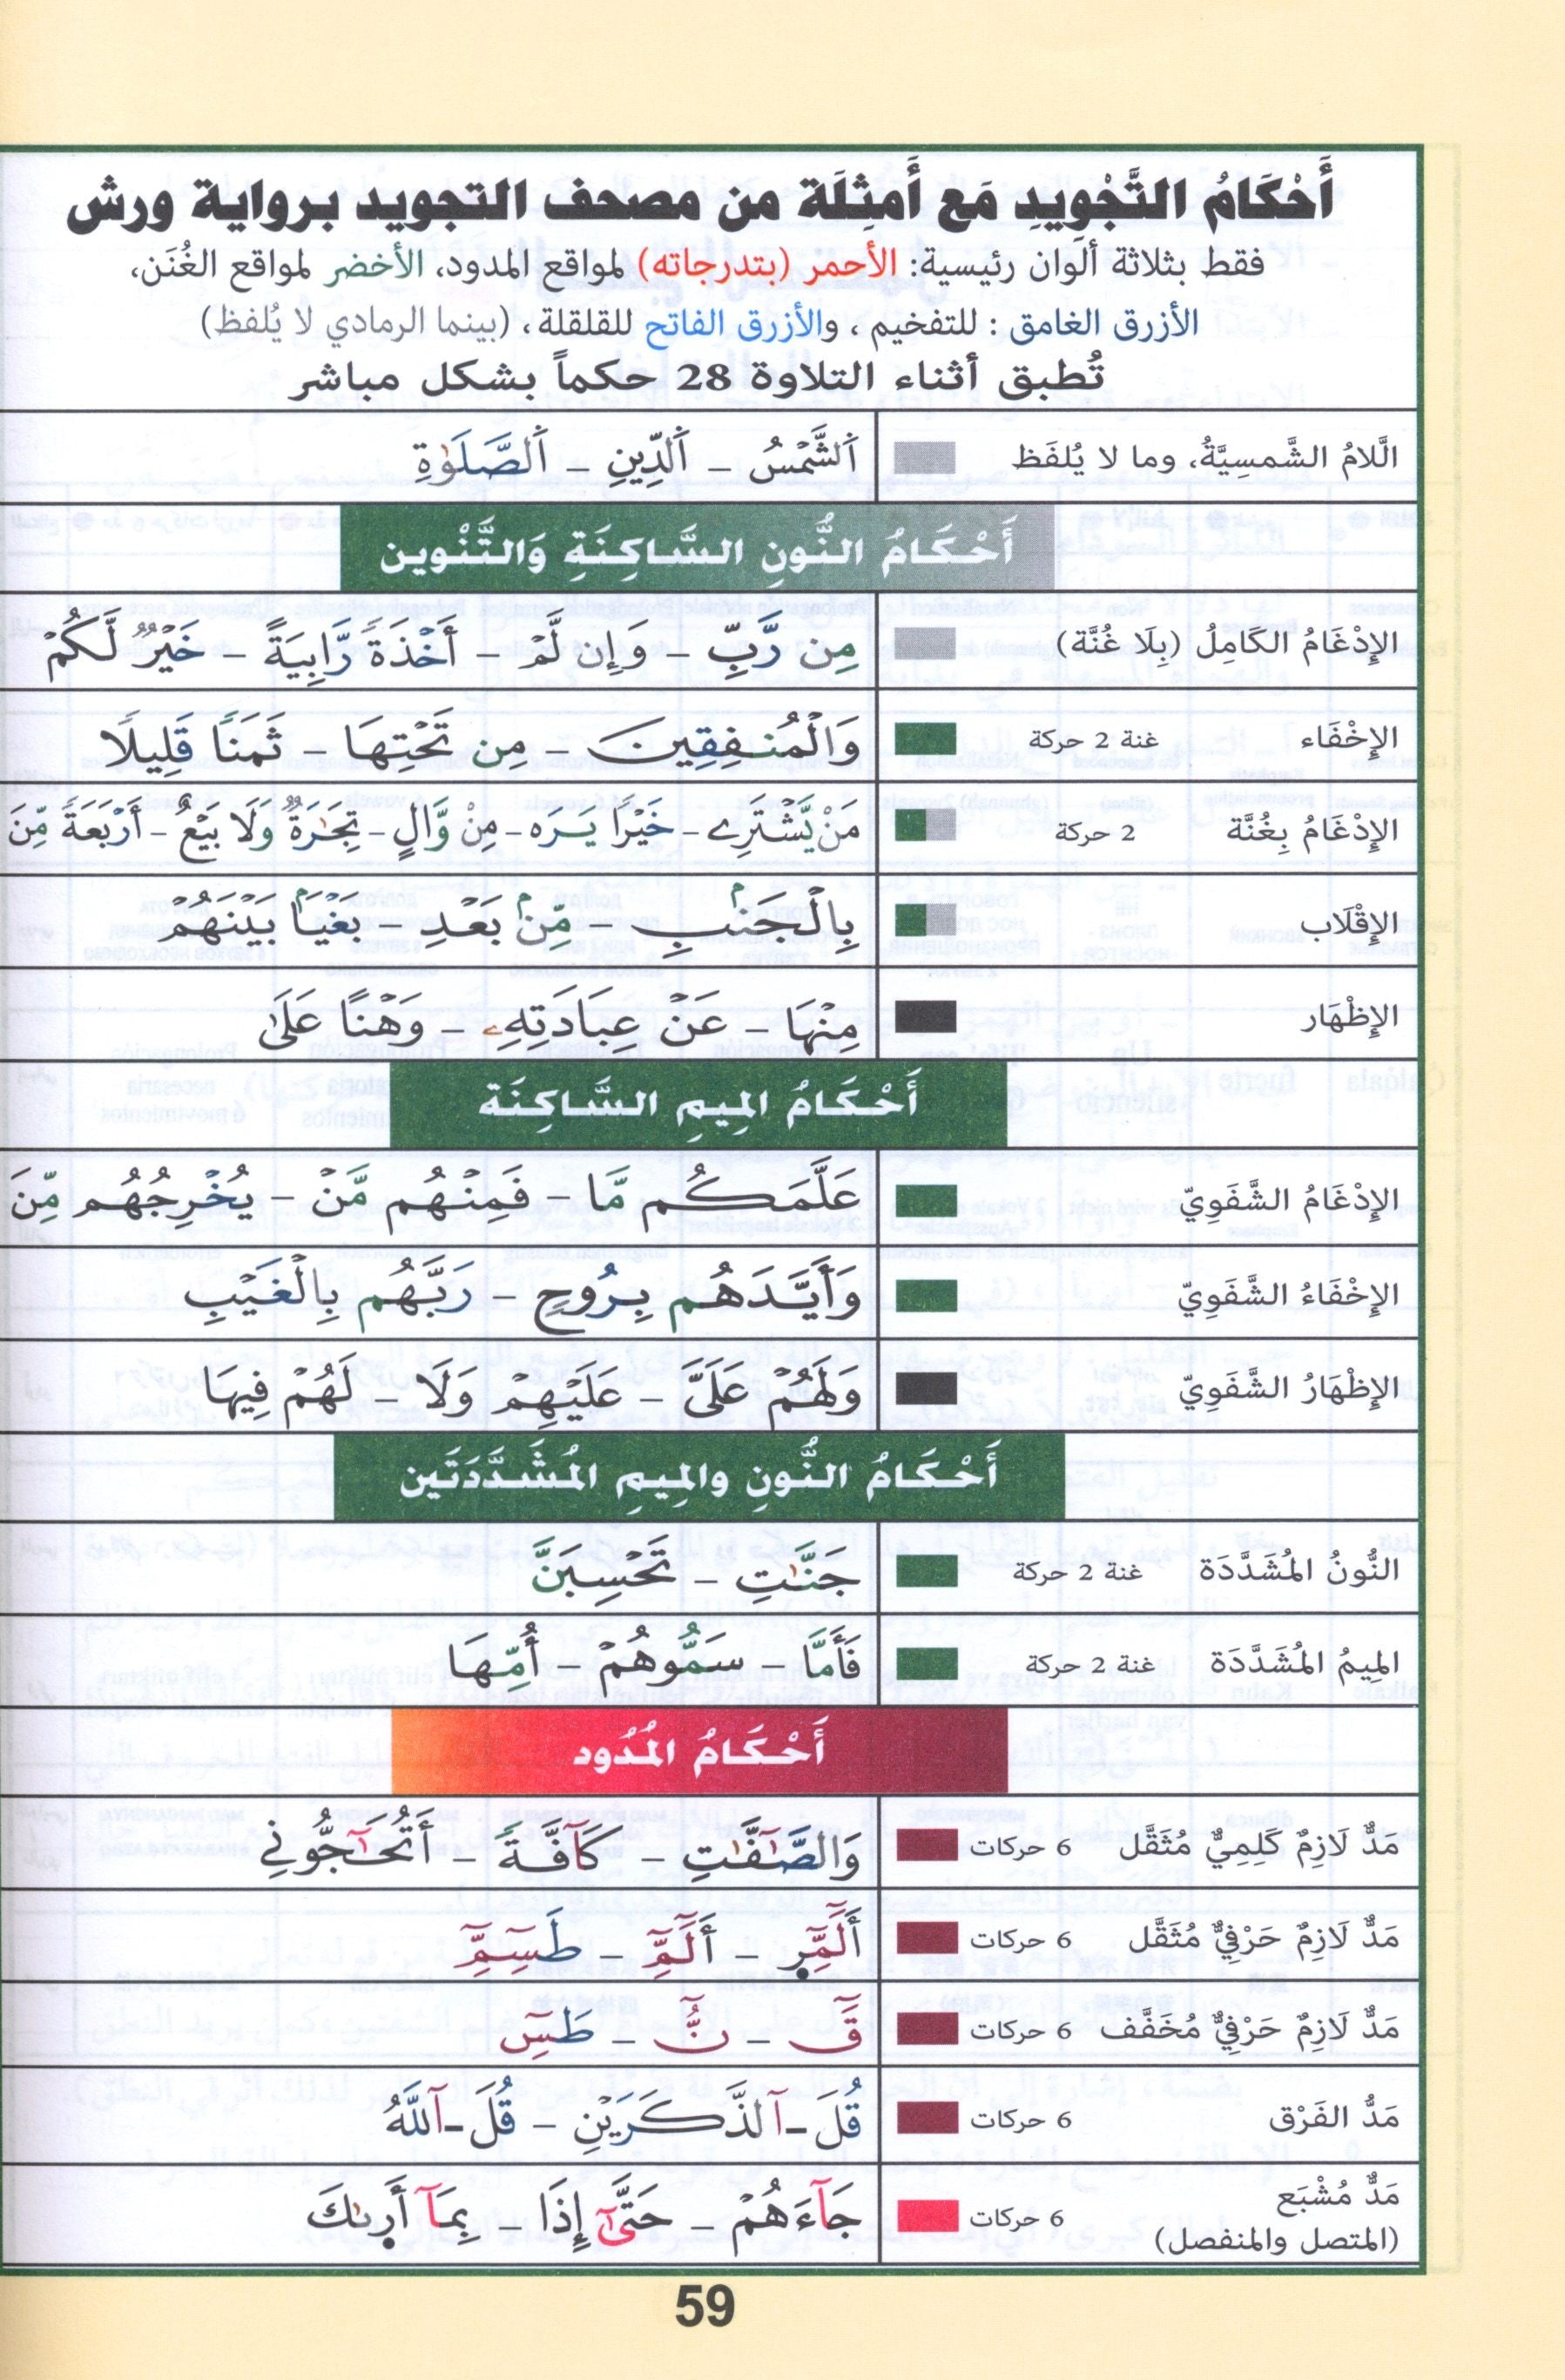 أَحْكَامُ التَّجْوِيدِ مَع أَمثِلَة من مصحف التجويد برواية ورش
فقط بثلاثة ألوان رئيسية: الأحمر (بتدرجاته) لمواقع المدود، الأخضر لمواقع الغُنَن،
الأزرق الغامق : للتفخيم ، والأزرق الفاتح للقلقلة ، (بينما الرمادي لا يُلفظ)
تُطبق أثناء التلاوة 28 حكماً بشكل مباشر
اللَّامُ الشَّمسِيَّةُ، وما لا يُلفَظ اَ۬لشَّمْسُ – اَ۬لدِّينِ – اَ۬لصَّلَوٰةِ
أَحْكَامُ النُّونِ السَّاكِنَةِ وَالتَّنْوين
الإدْغَامُ الكَامِلُ (بِلَا غُنَّة) مِن رَّبِّ – وَإِن لَّمْ – أَخْذَةً رَّابِيَةً – خَيْرٌ لَّكُمْ
الإخْفَاء غنة 2 حركة وَالْمُنفِقِينَ – مِن تَحْتِهَا – ثَمَنًا قَلِيلًا
الإدْغَامُ بِغُنَّة 2 حركة مَنْ يَّشْتَرِے – خَيْرًا يَرَه – مِنْ وَّالٍ – تِجَٰرَةٌ وَلَا بَيْعٌ – أَرْبَعَةً مِّنَ
الإقْلَاب بِالْجَنۢبِ – مِّنۢ بَعْدِ – بَغْيَۢا بَيْنَهُمْ
الإظْهَار مِنْهَا – عَنْ عِبَادَتِهِۦ – وَهْنًا عَلَىٰ
أَحْكَامُ المِيمِ السَّاكِنَة
الإدْغَامُ الشَّفَوِيّ عَلَّمَكُم مَّا – فَمِنْهُم مَّنْ – يُخْرِجُهُم مِّنَ
الإخْفَاءُ الشَّفَوِيّ وَأَيَّدَهُم بِرُوحٍ – رَبَّهُم بِالْغَيْبِ
الإظْهَارُ الشَّفَوِيّ وَلَهُمْ عَلَىَّ – عَلَيْهِمْ وَلَا – لَهُمْ فِيهَا
أَحْكَامُ النُّونِ والمِيمِ المُشَدَّدَتَين
النُّونُ المُشَدَّدَة غنة 2 حركة جَنَّٰتِ – تَحْسِبَنَّ
المِيمُ المُشَدَّدَة غنة 2 حركة فَأَمَّا – سَمُّوهُمْ – أُمِّهَا
أَحْكَامُ المُدُود
مَدٌّ لَازِمٌ كَلِمِيٌّ مُثَقَّل 6 حركات وَالصَّٰٓفَّٰتِ – كَآفَّةً – أَتُحَٰٓجُّوٓنِي
مَدٌّ لَازِمٌ حَرْفِيٌّ مُثَقَّل 6 حركات أَلَٓمِّٓر – أَلَٓمِّٓ – طَسِٓمِّٓ
مَدٌّ لَازِمٌ حَرْفِيٌّ مُخَفَّف 6 حركات قَٓ – نُّٓ – طَسِٓ
مَدُّ الفَرْق 6 حركات قُلَ ـ آلذَّكَرَيْنِ – قُلَ ـ آللَّهُ
مَدٌّ مُشْبَع 6 حركات جَآءَهُمْ – حَتَّىٰٓ إِذَا – بِمَآ أَرٜىٰكَ
(المتصل والمنفصل)
59